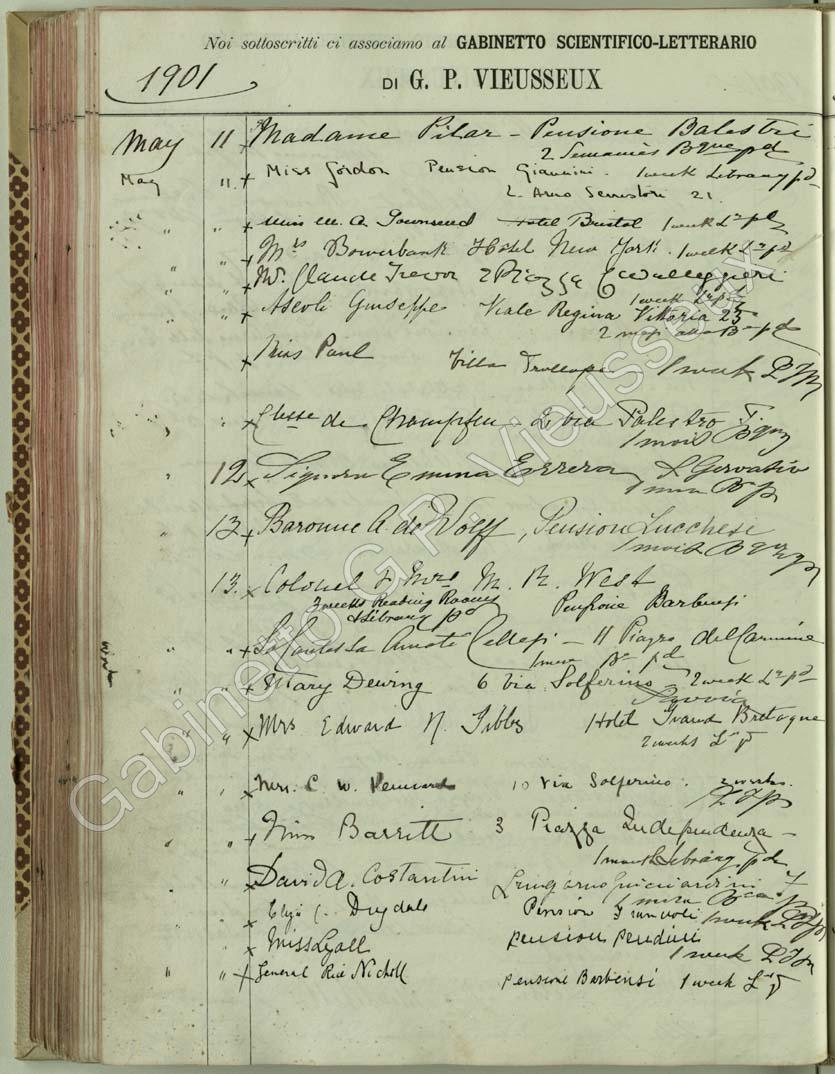 Noi sottoscritti ci associamo al GABINETTO SCIENTIFICO-LETTERARIO
1901
DI G. P. VIEUSSEUX
May 11 Madame Pilar - Pensione Balestri
2 Semaines pd
May 11 Miss Gordon Pension Giannini. 1 week Library pd
2. Arno Serristori 21.
" " Miss M. A. Townsend Hotel Bristol 1 week
" " Mrs Bowerbank Hotel New York. 1 week Lry pd
" " Mr. Claude Trevor 2 Piazza Cavalleggieri
1 week
" " Ascoli Giuseppe Viale Regina Vittoria 25
2 mesi pd
Miss Paul Villa Trollope 1 week
" Ctesse de Via Palestro 7.
1 mois
" 12 Signora Emma Errera S. Gervasio
" 13 Baronne A. de Wolff, Pension Lucchesi
1 mois
" 13. Colonel & Mrs M. R. West
3 weeks Reading Room Pensione Barbensi
& Library pd
" " La Contessa Cellesi - 11 Piazza del Carmine
pd
" " Mary Dewing 6 Via Solferino - 2 week Lry pd
" " Mrs Edward N. Gibbs Hotel Grand Bretagne
2 weeks
" " Mrs. C. W. 10 Via Solferino. 2 weeks.
" " Miss Barritt 3 Piazza Independenza -
Library. pd
" David A. Costantini Lungarno Guicciardini 7
Dugdale Pension 1 week
" Miss Lyall pension pendini
1 week
" " General Rice Nicholl pensione Barbensi 1 week
Gabinetto G.P. Vieusseux